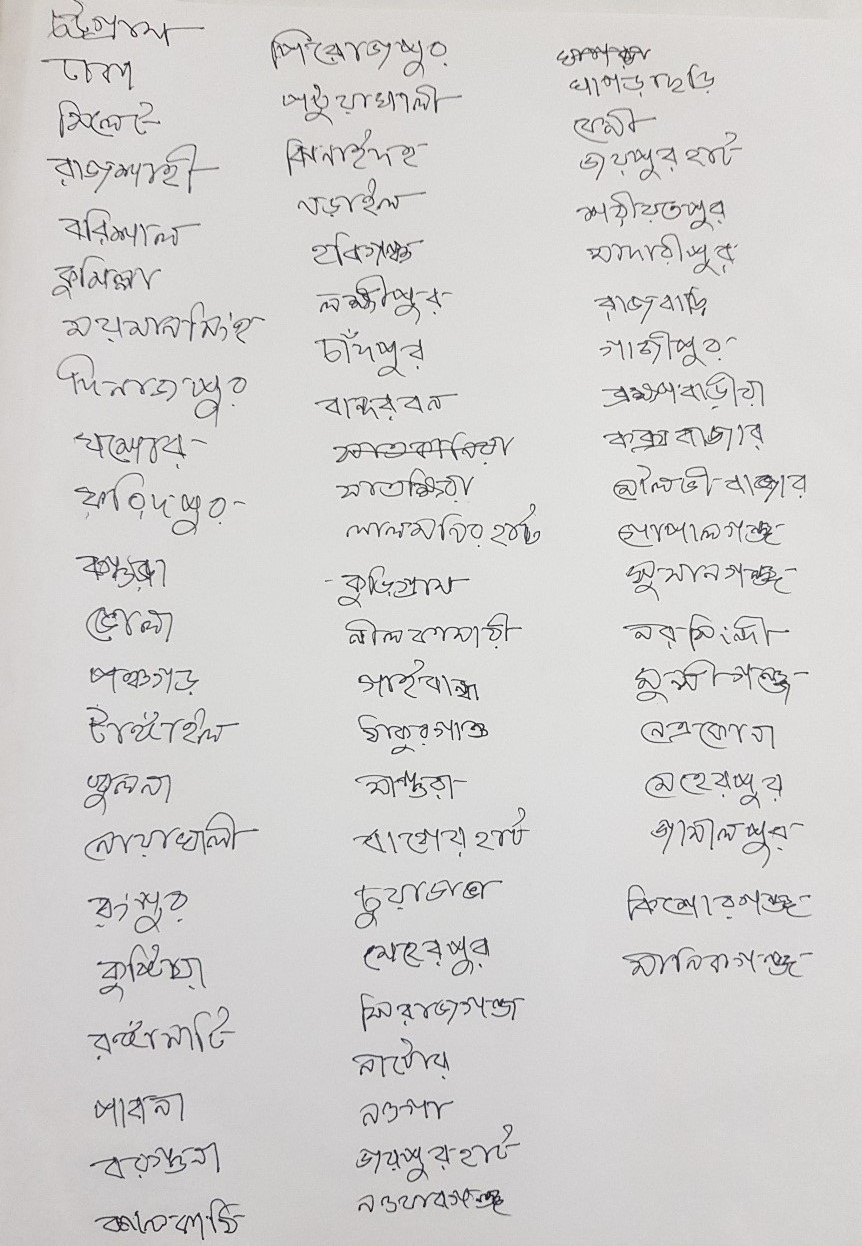 চট্টগ্রাম
ঢাকা
সিলেট
রাজশাহী
বরিশাল
কুমিল্লা
ময়মনসিংহ
দিনাজপুর
যশোর
ফরিদপুর
বগুড়া
ভোলা
পঞ্চগড়
টাঙ্গাইল
খুলনা
নোয়াখালী
রংপুর
কুষ্টিয়া
রাঙ্গামাটি
পাবনা
বরগুনা
ঝালকাঠি
পিরোজপুর
পটুয়াখালী
ঝিনাইদহ
নড়াইল
হবিগঞ্জ
লক্ষীপুর
চাঁদপুর
বান্দরবন
সাতকানিয়া
সাতক্ষিরা
লালমনিরহাট
কুড়িগ্রাম
নীলফামারী
গাইবান্ধা
ঠাকুরগাও
মাগুরা
বাগেরহাট
চুয়াডাঙ্গা
মেহেরপুর
সিরাজগঞ্জ
নাটোর
নওগা
জয়পুরহাট
নওয়াবগঞ্জ
খাগড়াছড়ি
ফেনী
জয়পুরহাট
শরীয়তপুর
মাদারীপুর
রাজবাড়ি
গাজীপুর
ব্রাহ্মণবাড়ীয়া
কক্সবাজার
মৌলভীবাজার
গোপালগঞ্জ
সুনামগঞ্জ
নরসিংদী
মুন্সীগঞ্জ
নেত্রকোনা
মেহেরপুর
জামালপুর
কিশোরগঞ্জ
মানিকগঞ্জ